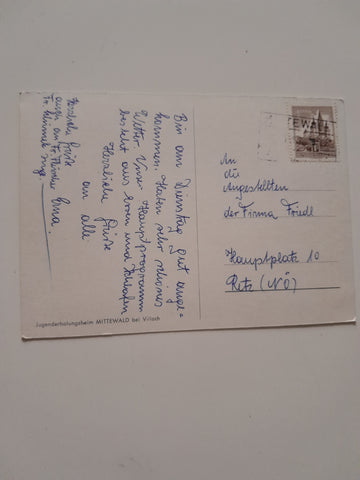 Bin am Dienstag gut ange=
kommen. Haben sehr schönes
Wetter. Unser Hauptprogramm
besteht aus Essen und Schlafen
Herzliche Grüße
an alle
Erna.
Herzliche Grüße
auch an Fr.
Fr.
An
die
Angestellten
der Firma Friedl
Hauptplatz 10
Retz (NÖ)
Jugenderholungsheim MITTEWALD bei Villach